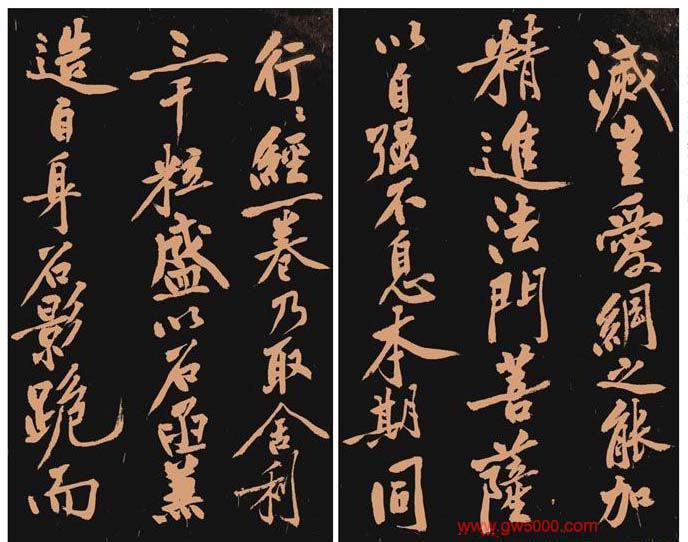 滅豈愛網之能加
精進法門菩薩
以自强不息本期同
行々經一卷乃取舍利
三千粒盛以石函兼
造自身石影跪而
www.gw5000.com